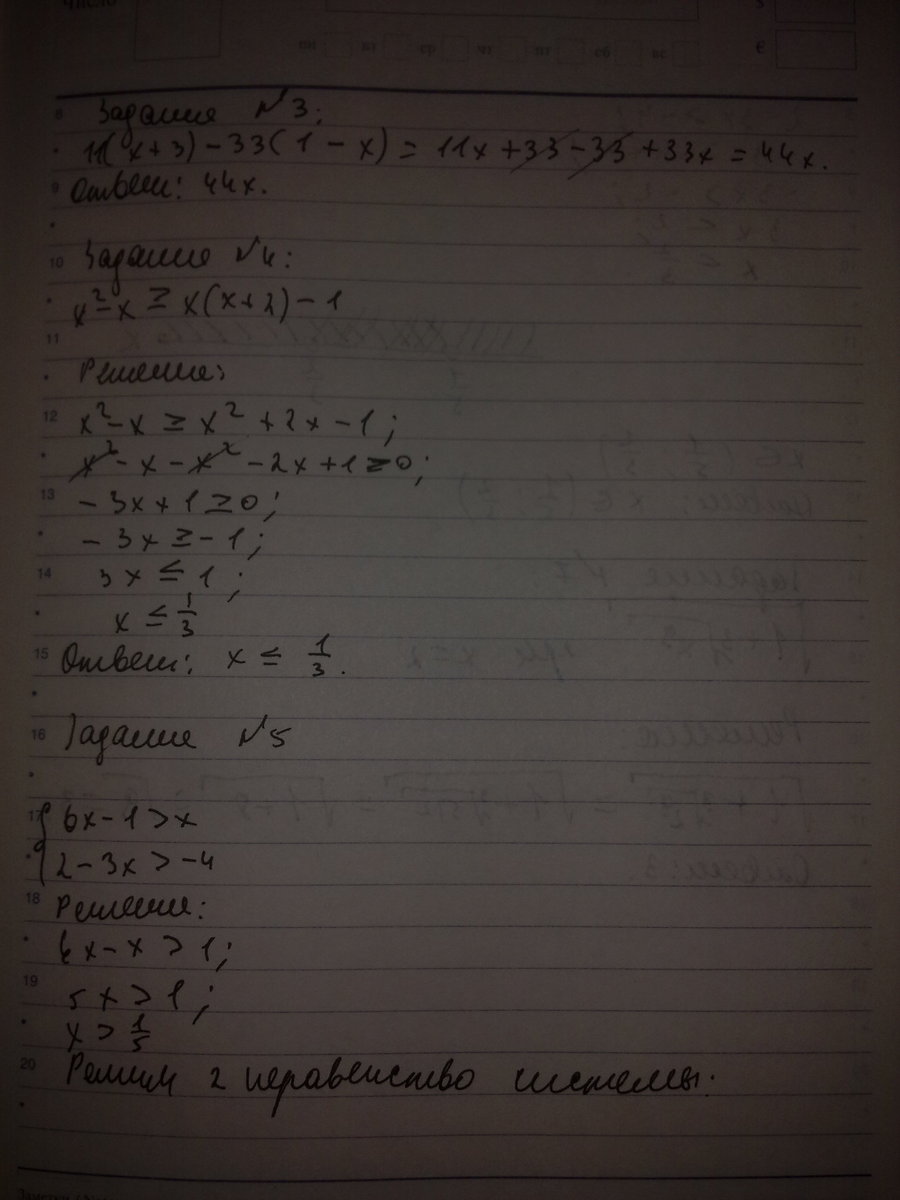 Число
пн вт ср чт пт сб вс
€
8 Задание №3:
11(x+3) - 33(1 - x) = 11x + 33 - 33 + 33x = 44x.
9 Ответ: 44x.
10 Задание №4:
x² - x ≥ x(x+2) - 1
11
Решение:
12 x² - x ≥ x² + 2x - 1;
x² - x - x² - 2x + 1 ≥ 0;
13 - 3x + 1 ≥ 0;
- 3x ≥ - 1;
14 3x ≤ 1;
x ≤ 1/3
15 Ответ: x ≤ 1/3.
16 Задание №5
17 { 6x - 1 > x
2 - 3x > -4
18 Решение:
6x - x > 1;
19 5x > 1;
x > 1/5
20 Решим 2 неравенство системы.